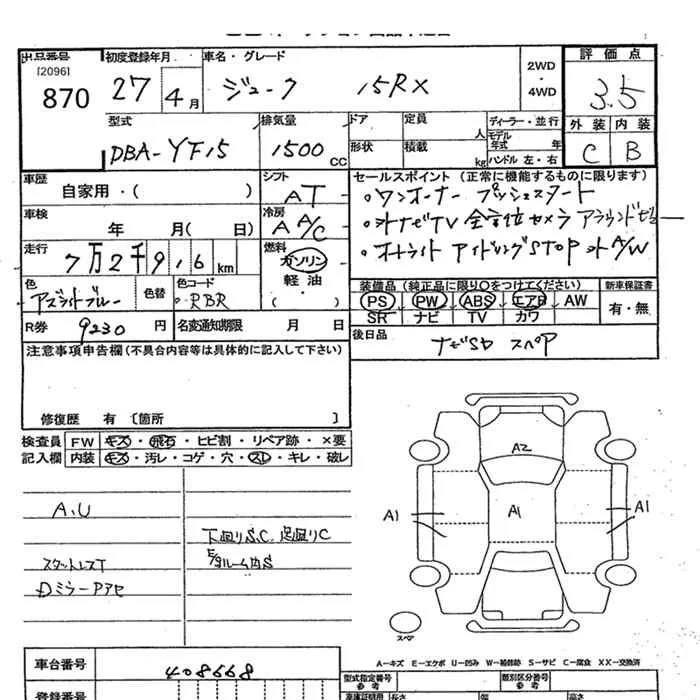 出品番号
[2096]
870
初度登録年月
27 4月
車名・グレード
ジューク 15RX
2WD
・
4WD
評価点
3.5
外装 内装
C B
型式
DBA-YF15
排気量
1500 CC
ドア
形状
定員
人
積載
kg
ディーラー・並行
モデル
年式 年
ハンドル 左・右
車歴
自家用・( )
シフト
AT
車検
年 月( 日)
冷房
A A/C
走行
7万2千9.16km
燃料
ガソリン
軽油
・( )
色
色替
色コード
RBR
R券 9230円
名変通知期限 月 日
セールスポイント (正常に機能するものに限ります)
・ワンオーナー プッシュスタート
・外ナビTV 全方位カメラ
・オートライト アイドリングSTOP 外A/W
装備品(純正品に限り○をつけてください)
PS PW ABS エアB AW
SR ナビ TV カワ
新車保証書
有・無
後日品
ナビSD スペア
注意事項申告欄(不具合内容等は具体的に記入して下さい)
修復歴 有 [箇所 ]
検査員 FW キズ・飛石・ヒビ割・リペア跡・×要
記入欄 内装 キズ・汚レ・コゲ・穴・スレ・キレ・破レ
A.U
スタットレスT
Dミラー
下廻りS.C. 足廻りC
A2
A1
A1
A1
スペア
A-キズ E-エクボ U-凹み W-補修跡 S-サビ C-腐食 XX-交換済
車台番号
408668
登録番号
型式指定番号
参考
類別区分番号
参考
長さ
幅
高さ